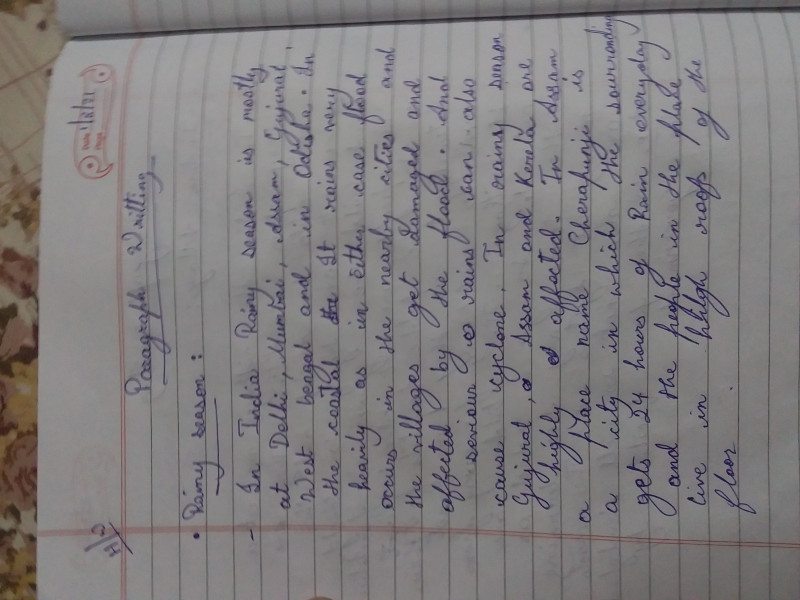 H/W
Date 1/8/21
Page
Paragraph Writting
• Rainy season :
- In India Rainy season is mostly
at Delhi, Mumbai, Assam, Gujurat,
West bengal and in Odisha. In
the coastal the It rains very
heavily as in either case flood
occurs in the nearby cities and
the villages get damaged and
affected by the flood. And
seviour rains can also
cause cyclone. In rainy season
Gujurat, Assam and Kerela are
highly affected. In Assam
a place name Cherapunji is
a city in which the sourronding
gets 24 hours of Rain everyday
and the people in the place
live in high roofs of the
floor.